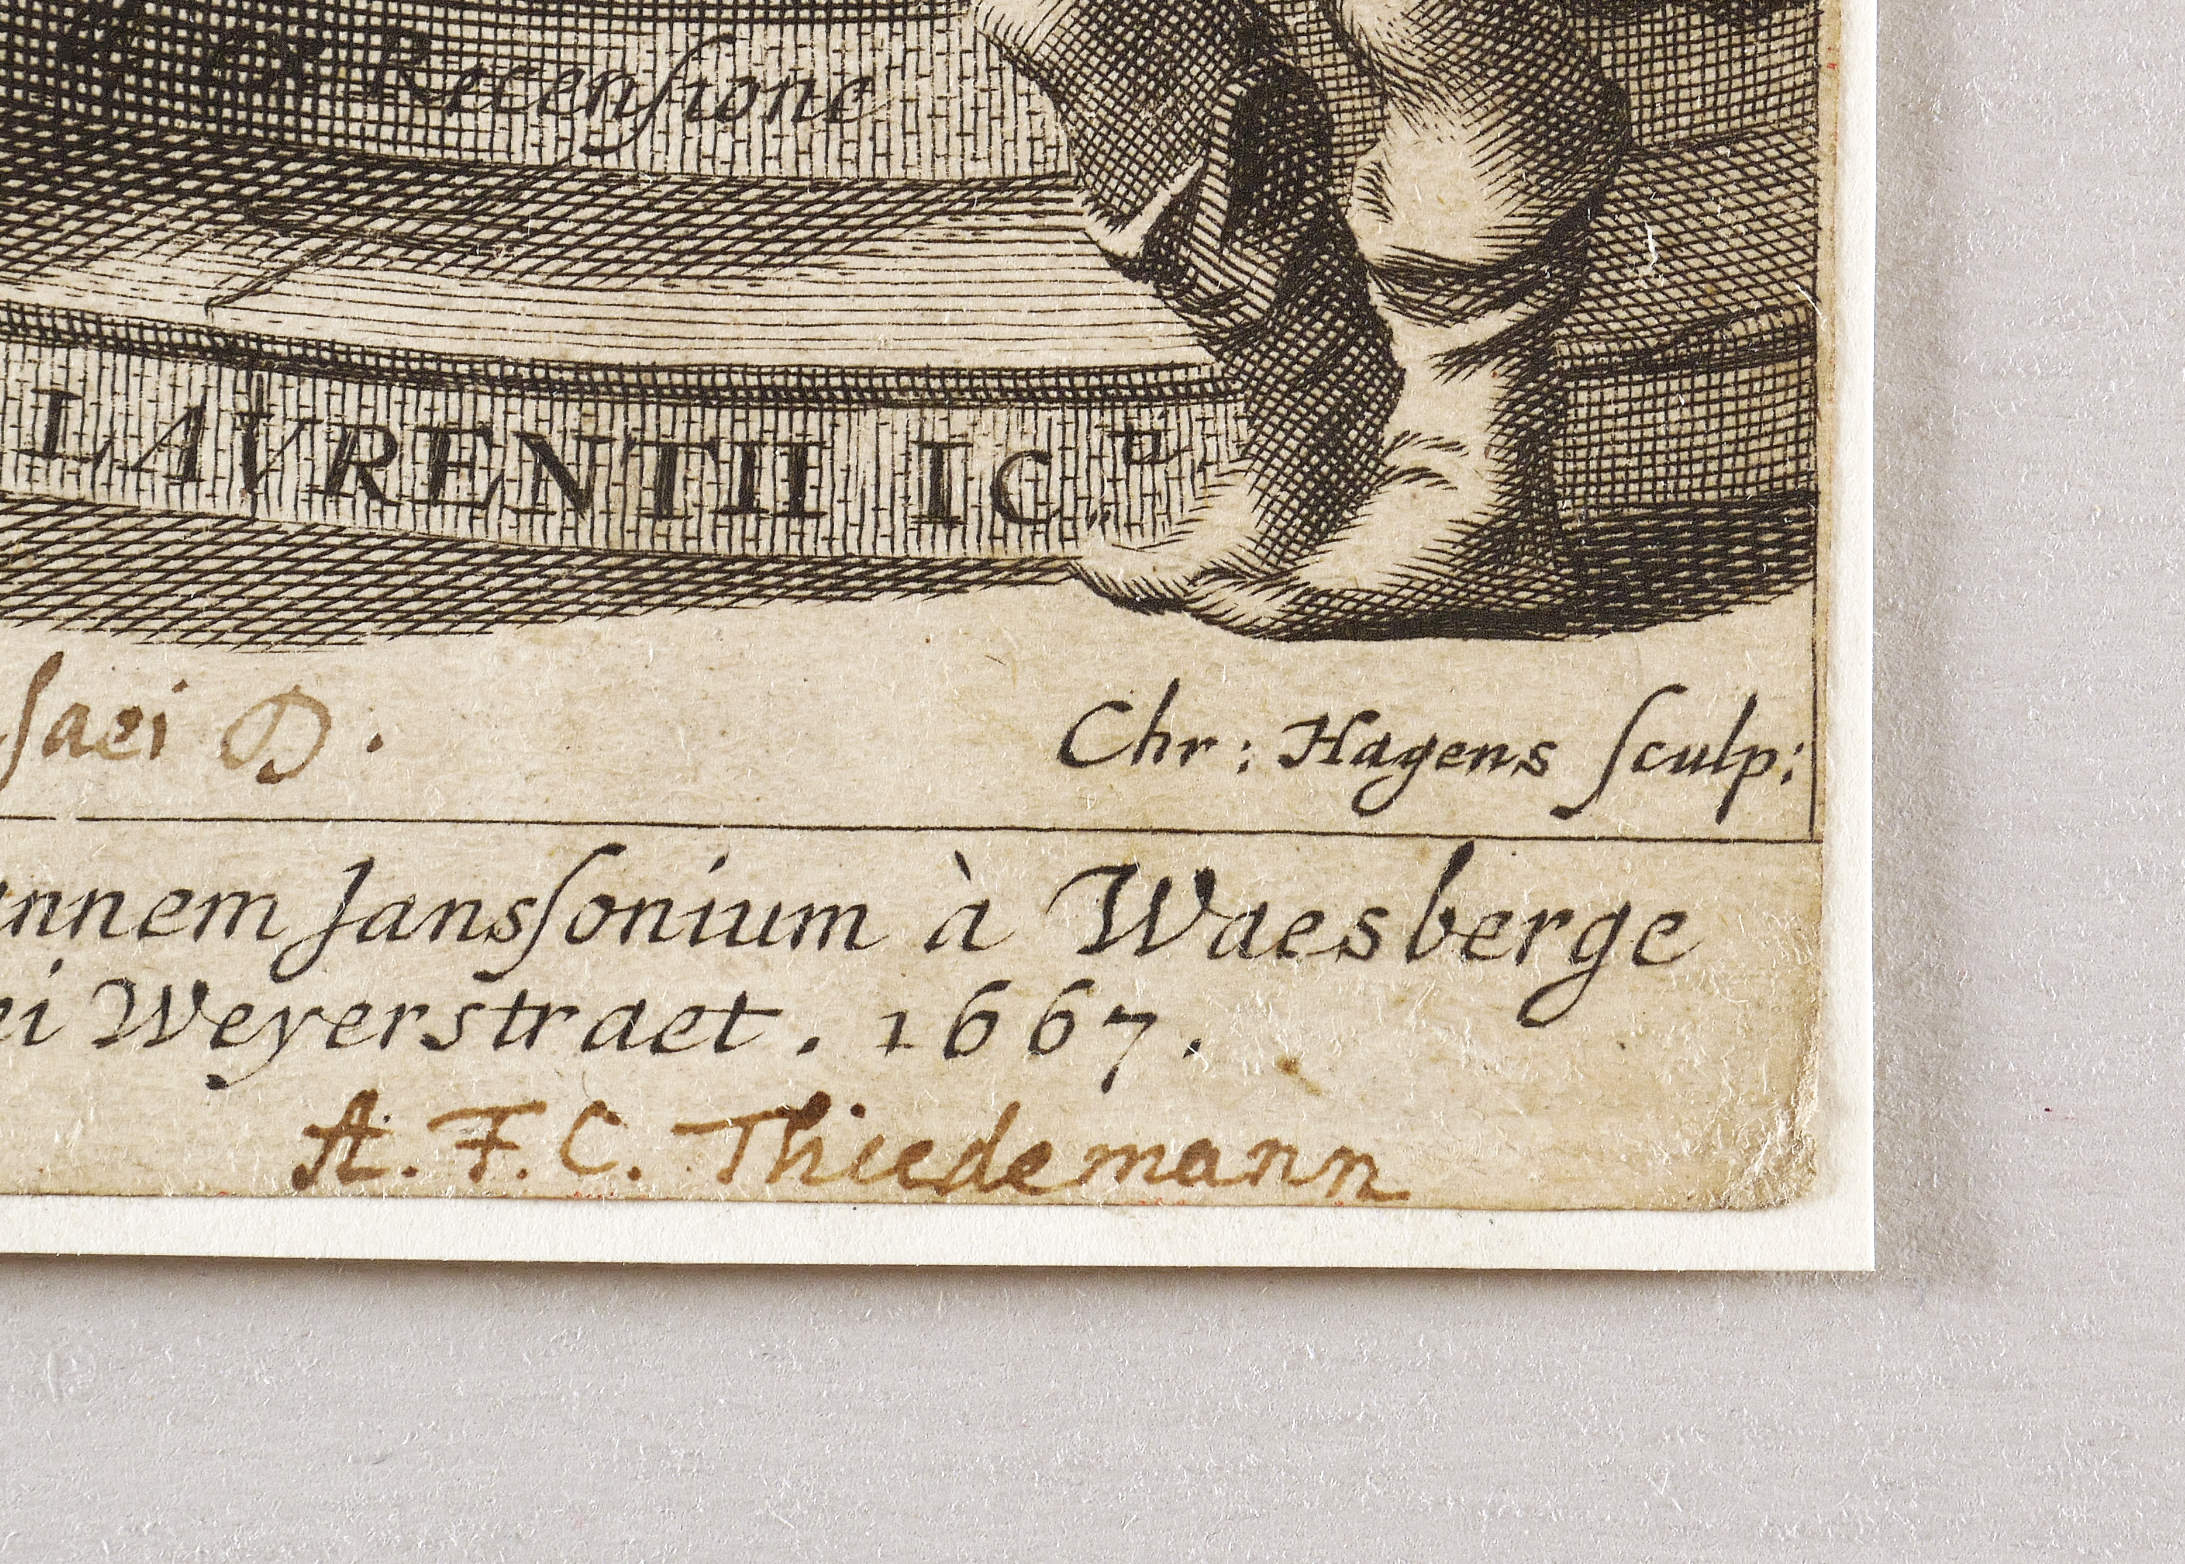 Ex Recensione
LAVRENTII IC.ti
saei D.
Chr: Hagens sculp:
annem Janssonium à Waesberge
ei Weyerstraet. 1667.
A. F. C. Thiedemann